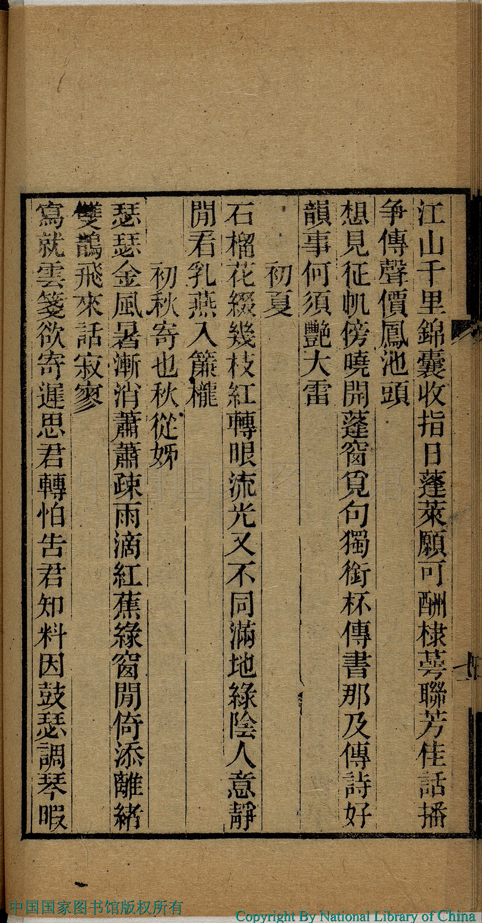 江山千里錦囊收指日蓬萊願可酬棣萼聯芳佳話播
爭傳聲價鳳池頭
想見征帆傍曉開蓬窗覓句獨銜杯傳書那及傳詩好
韻事何須艷大雷
初夏
石榴花綴幾枝紅轉眼流光又不同滿地綠陰人意靜
閒看乳燕入簾櫳
初秋寄也秋從姊
瑟瑟金風暑漸消蕭蕭疎雨滴紅蕉綠窗閒倚添離緒
雙鵲飛來話寂寥
寫就雲箋欲寄遲思君轉怕吿君知料因鼓瑟調琴暇
中国国家图书馆版权所有
Copyright By National Library of China